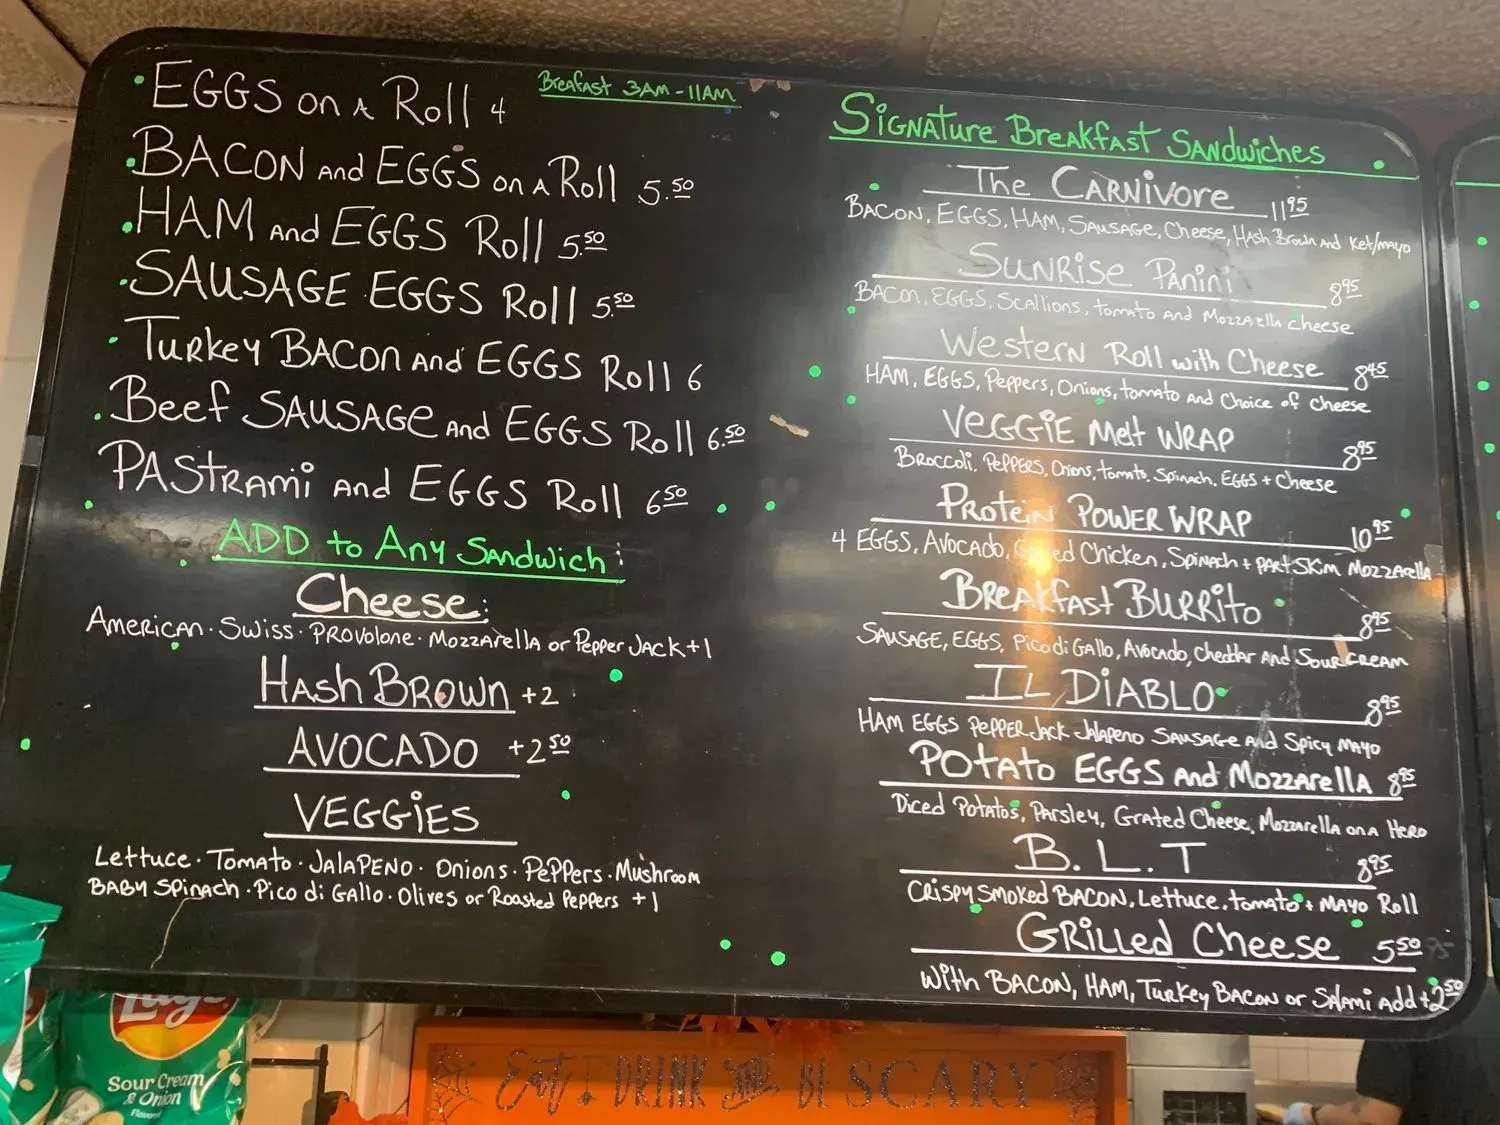 EGGS on A Roll 4
Breafast 3AM - 11AM
BACON and EGGS on A Roll 5.50
HAM and EGGS Roll 5.50
SAUSAGE EGGS Roll 5.50
Turkey BACON and EGGS Roll 6
Beef SAUSAGE and EGGS Roll 6.50
PAStrami and EGGS Roll 6.50
ADD to Any Sandwich:
Cheese:
American · Swiss · Provolone · Mozzarella or Pepper Jack +1
Hash Brown +2
AVOCADO +2.50
VEGGiES
Lettuce · Tomato · JALAPENO · Onions · Peppers · Mushroom
BABY Spinach · Pico di Gallo · Olives or Roasted Peppers +1
Signature Breakfast Sandwiches
The CARNivore 11.95
BACON, EGGS, HAM, SAUSAGE, Cheese, Hash Brown and Ket/mayo
Sunrise Panini 8.95
BACON, EGGS, Scallions, tomato and Mozzarella cheese
Western Roll with Cheese 8.45
HAM, EGGS, Peppers, Onions, tomato and Choice of Cheese
VEGGiE Melt WRAP 8.95
Broccoli, Peppers, Onions, tomato, Spinach, EGGS + Cheese
Protein POWER WRAP 10.95
4 EGGS, Avocado, Chicken, Spinach + PARt SKim Mozzarella
Breakfast BURRito 8.95
SAUSAGE, EGGS, Pico di Gallo, Avocado, Cheddar and Sour CREAM
IL DiABLO 8.95
HAM EGGS PEPPER Jack Jalapeno Sausage and Spicy Mayo
Potato EGGS and Mozzarella 8.95
Diced Potatos, Parsley, Grated Cheese, Mozzarella on a Hero
B.L.T 8.95
Crispy Smoked BACON, Lettuce, tomato + Mayo Roll
Grilled Cheese 5.50
With BACON, HAM, Turkey Bacon or Salami Add +2.50
Lay's
Sour Cream
& Onion
Flavored
Eat DRINK and BE SCARY